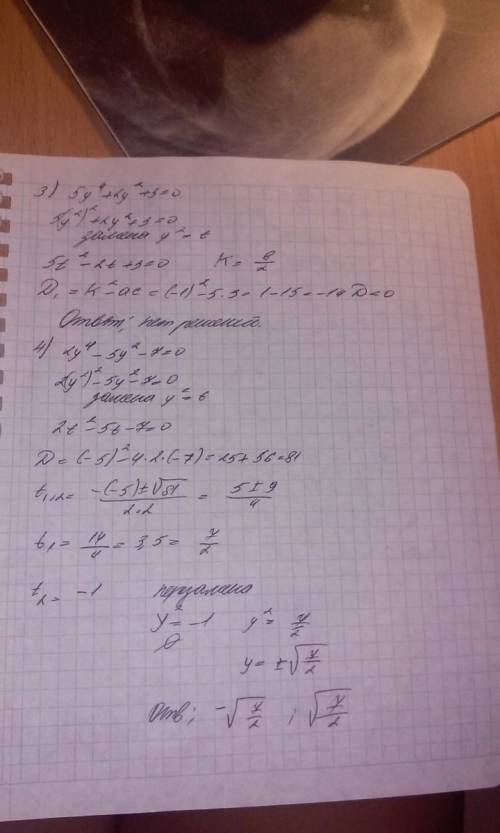 3) 5y⁴+2y²+3=0
5(y²)²+2y²+3=0
замена y²=t
5t²-2t+3=0 K=в/2
D₁=K²-ac=(-1)²-5·3=1-15=-14 D<0
Ответ; нет решений.
4) 2y⁴-5y²-7=0
2(y²)²-5y²-7=0
замена y²=t
2t²-5t-7=0
D=(-5)²-4·2·(-7)=25+56=81
t₁,₂=(-(-5)±√81)/(2·2)=(5±9)/4
t₁=14/4=3,5=7/2
t₂=-1
y²=-1 y²=7/2
∅ y=±√(7/2)
Отв; -√(7/2) ; √(7/2)